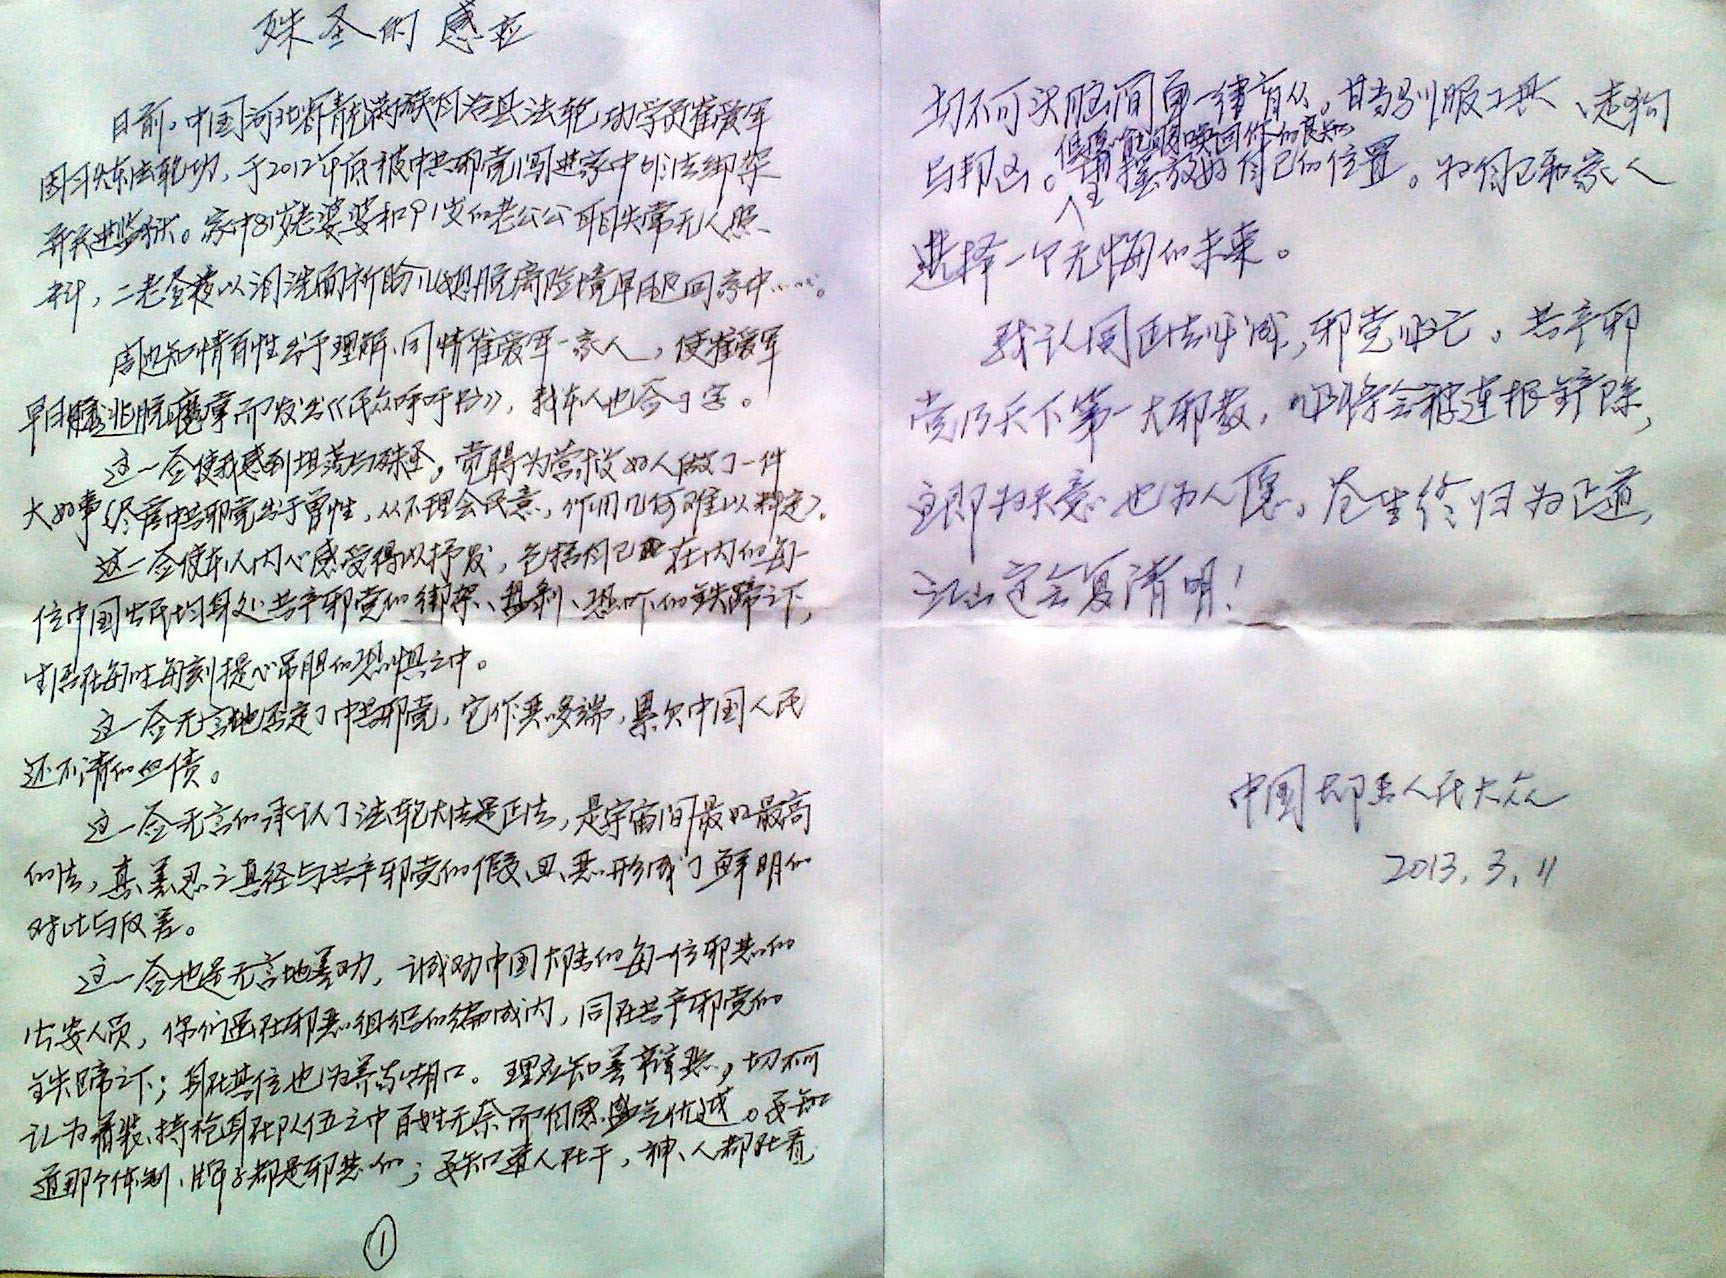 殊圣的感应
日前，中国河北省青龙满族自治县法轮功学员崔爱军
因习炼法轮功，于2012年底被中共邪党闯进家中非法绑架
并关进监狱。家中81岁老婆婆和91岁的老公公耳目失常无人照
料，二老昼夜以泪洗面祈盼儿媳脱离险境早日返回家中……。
周边知情百姓出于理解、同情崔爱军一家人，使崔爱军
早日逃脱魔掌而发出《民众呼吁书》，我本人也签了字。
这一签使我感到坦荡与殊圣，觉得为营救好人做了一件
大好事（尽管中共邪党出于兽性，从不理会民意，作用几何难以料定）。
这一签使本人内心感受得以抒发，包括自己在内的每一
位中国公民均身处共产邪党的绑架、恐吓的铁蹄之下，
生活在每时每刻提心吊胆的恐惧之中。
这一签无言地否定了中共邪党，它作恶多端，累欠中国人民
还不清的血债。
这一签无言的承认了法轮大法是正法，是宇宙间最好最高
的法，真、善、忍之真经与共产邪党的假、丑、恶形成了鲜明的
对比与反差。
这一签也是无言地善劝，诫劝中国大陆的每一位邪恶的
公安人员，你们虽在邪恶组织的编成内，同在共产邪党的
铁蹄之下；身在其位也为养家糊口。理应知善辨恶，切不可
认为着装、持枪身在队伍之中百姓无奈而自感优越。要知
道那个体制、牌子都是邪恶的；要知道人在干，神、人都在看
①
切不可头脑简单一律盲从。甘当驯服工具、走狗
但愿能够唤回你的良知，
与帮凶。摆放好自己的位置。为自己和家人
选择一个无悔的未来。
我认同正法必成，邪党必亡。共产邪
党乃天下第一大邪教，必将会被连根铲除，
这即为天意也为人愿。苍生终归为正道，
江山定会复清明！
中国大陆人民大众
2013.3.11